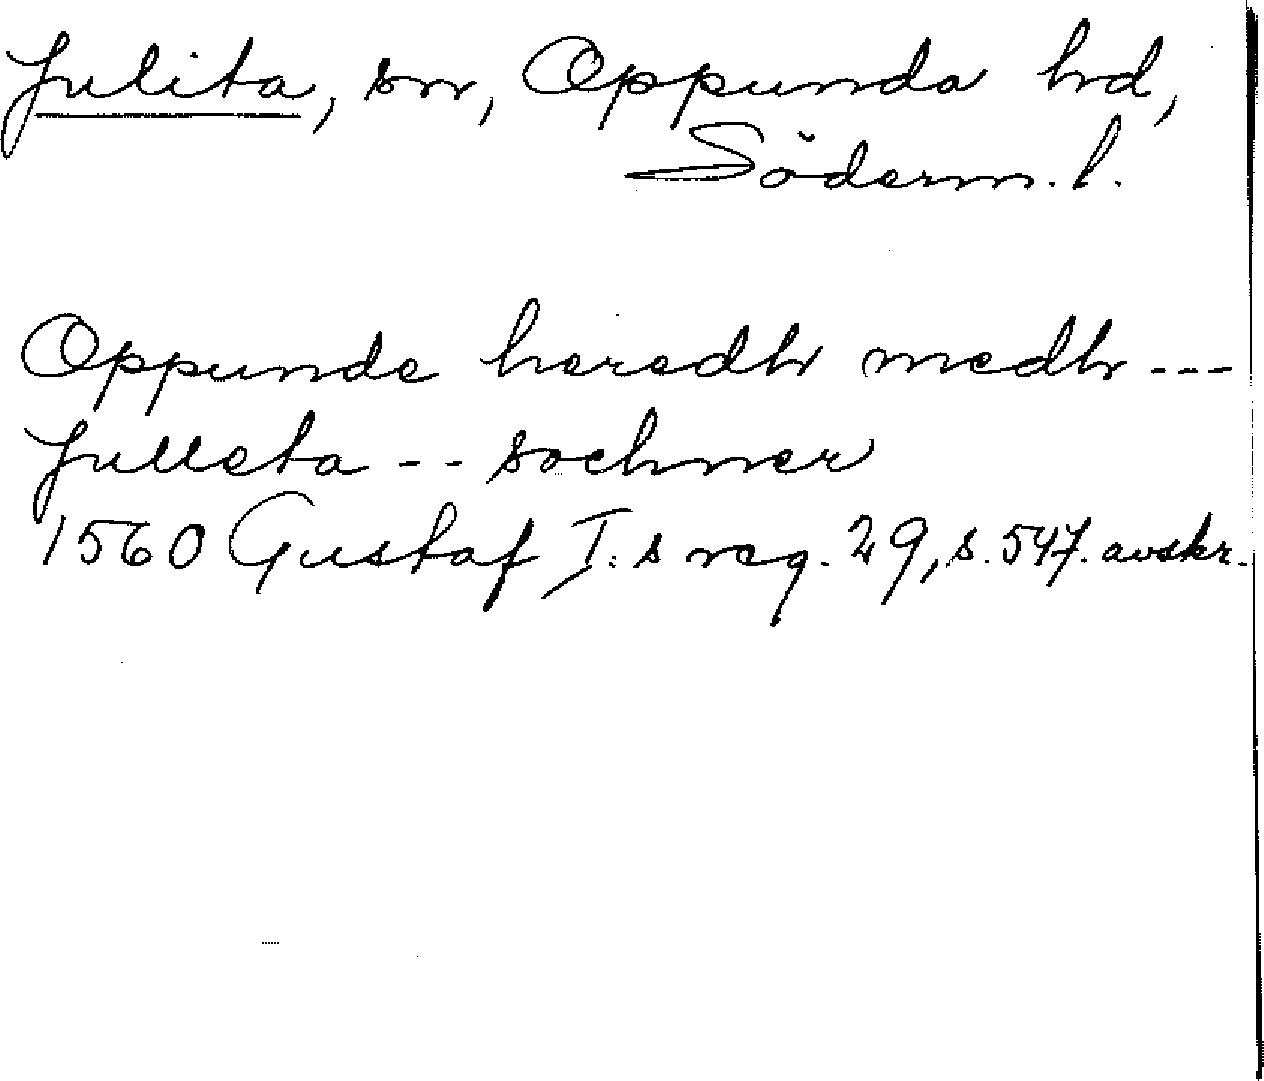 Julita, sn, Oppunda hd,
Söderm. l.
Oppunde heredh medh ---
Julleta -- sochner
1560 Gustaf I:s reg. 29, s. 547. avskr.